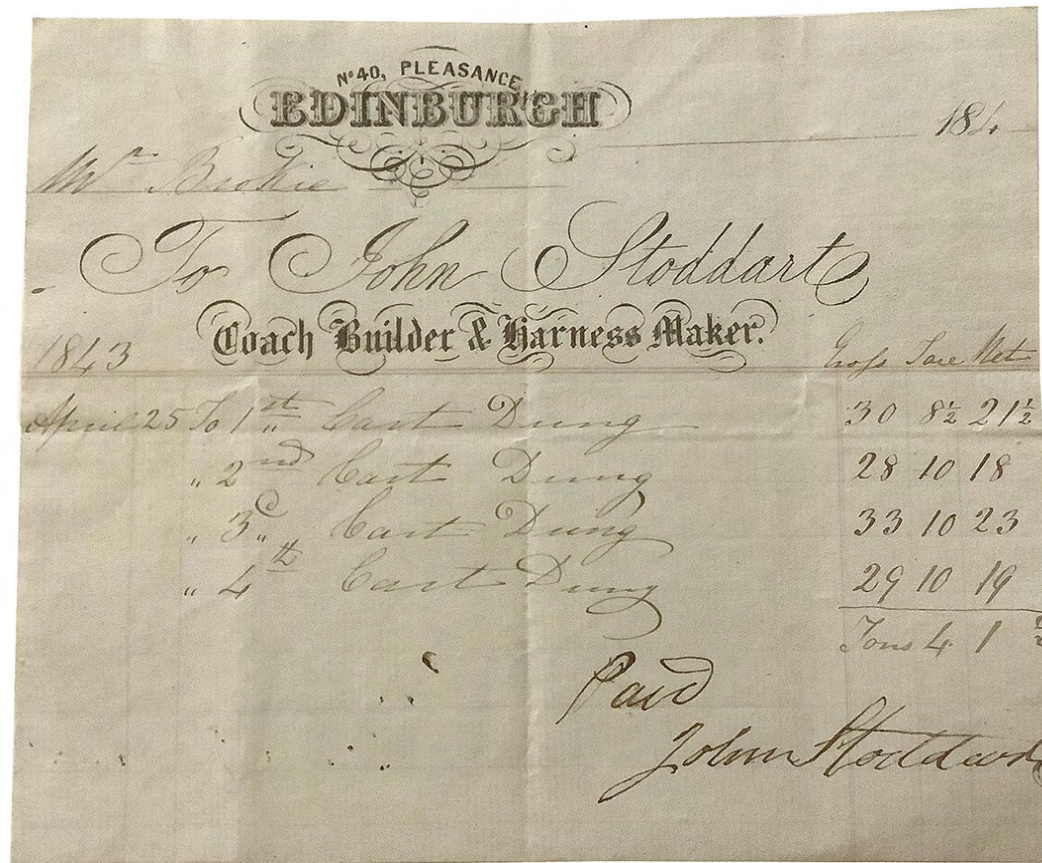 No 40, PLEASANCE,
EDINBURGH
184
Mr Brokie
To John Stoddart
Coach Builder & Harness Maker.
1843 Gross Tare Net
April 25 To 1st „ Cart Dung 30 8½ 21½
„ 2nd Cart Dung 28 10 18
„ 3d „ Cart Dung 33 10 23
„ 4th Cart Dung 29 10 19
Tons 4 1 ½
Paid
John Stoddart